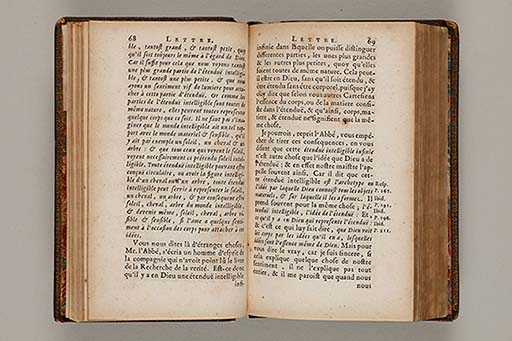 68 LETTRE.
ble, tantost grand, & tantost petit, quoy
qu'il soit toujours le même à l'égard de Dieu.
Car il suffit pour cela que nous voyons tantost
une plus grande partie de l'étenduë intelligi-
ble, & tantost une plus petite, & que nous
ayons un sentiment vif de lumiere pour atta-
cher à cette partie d'étenduë. Or comme les
parties de l'étenduë intelligible sont toutes de
même nature, elles peuvent toutes representer
quelque corps que ce soit. Il ne faut pas s'ima-
giner que le monde intelligible ait un tel rap-
port avec le monde materiel & sensible, qu'il y
ait par exemple un soleil, un cheval & un
arbre: & que tous ceux qui voyent le soleil,
voyent necessairement ce prétendu soleil intel-
ligible. Toute étenduë intelligible pouvant estre
conçuë circulaire, ou avoir la figure intelligi-
ble d'un cheval ou d'un arbre, toute étenduë
intelligible peut servir à representer le soleil,
un cheval, un arbre, & par consequent estre
soleil, cheval, arbre du monde intelligible,
& devenir même, soleil, cheval, arbre visi-
ble & sensible, si l'ame a quelque senti-
ment à l'occasion des corps pour attacher à ces
idées.
Vous nous dites là d'étranges choses,
Mr. l'Abbé, s'écria un homme d'esprit de
la compagnie qui n'avoit point lû le livre
de la Recherche de la verité. Est-ce donc
qu'il y a en Dieu une étenduë intelligible
infi-
LETTRE. 69
infinie dans laquelle on puisse distinguer
differentes parties, les unes plus grandes
& les autres plus petites, quoy qu'elles
soient toutes de même nature. Cela peut-
il estre en Dieu, sans qu'il soit étendu, &
être étendu sans être corporel, puisque j'ay
oüy dire que selon vous autres Cartesiens
l'essence du corps ou de la matiere consi-
ste dans l'étenduë, & qu'ainsi, corps, ma-
tiere, & étenduë ne signifient que la mê-
me chose.
Je pourrois, reprit l'Abbé, vous empê-
cher de tirer ces consequences, en vous
disant que cette étenduë intelligible infinie
n'est autre chose que l'idée que Dieu a de
l'étenduë: & en effet nostre maistre l'ap-
pelle souvent ainsi. Car il dit que cet-
te étenduë intelligible est l'archetype ou Resp.
l'idée par laquelle Dieu connoist tous les objets P. 162.
materiels, & sur laquelle il les a formez. Il Ibid.
prend souvent pour la même chose, l'é-
tenduë intelligible, l'idée de l'étenduë: Et Ibid.
ce qu'il y a en Dieu qui represente l'étenduë: Ibid.
& c'est ce qui luy fait dire, que Dieu voit P. 211.
les corps par les idées qu'il en a, lesquelles
idées sont l'essence même de Dieu. Mais pour
vous dire le vray, car je suis sincere, si
cela explique quelque chose de nostre
sentiment, il ne l'explique pas tout
entier, & il me paroist que quand nous
nous